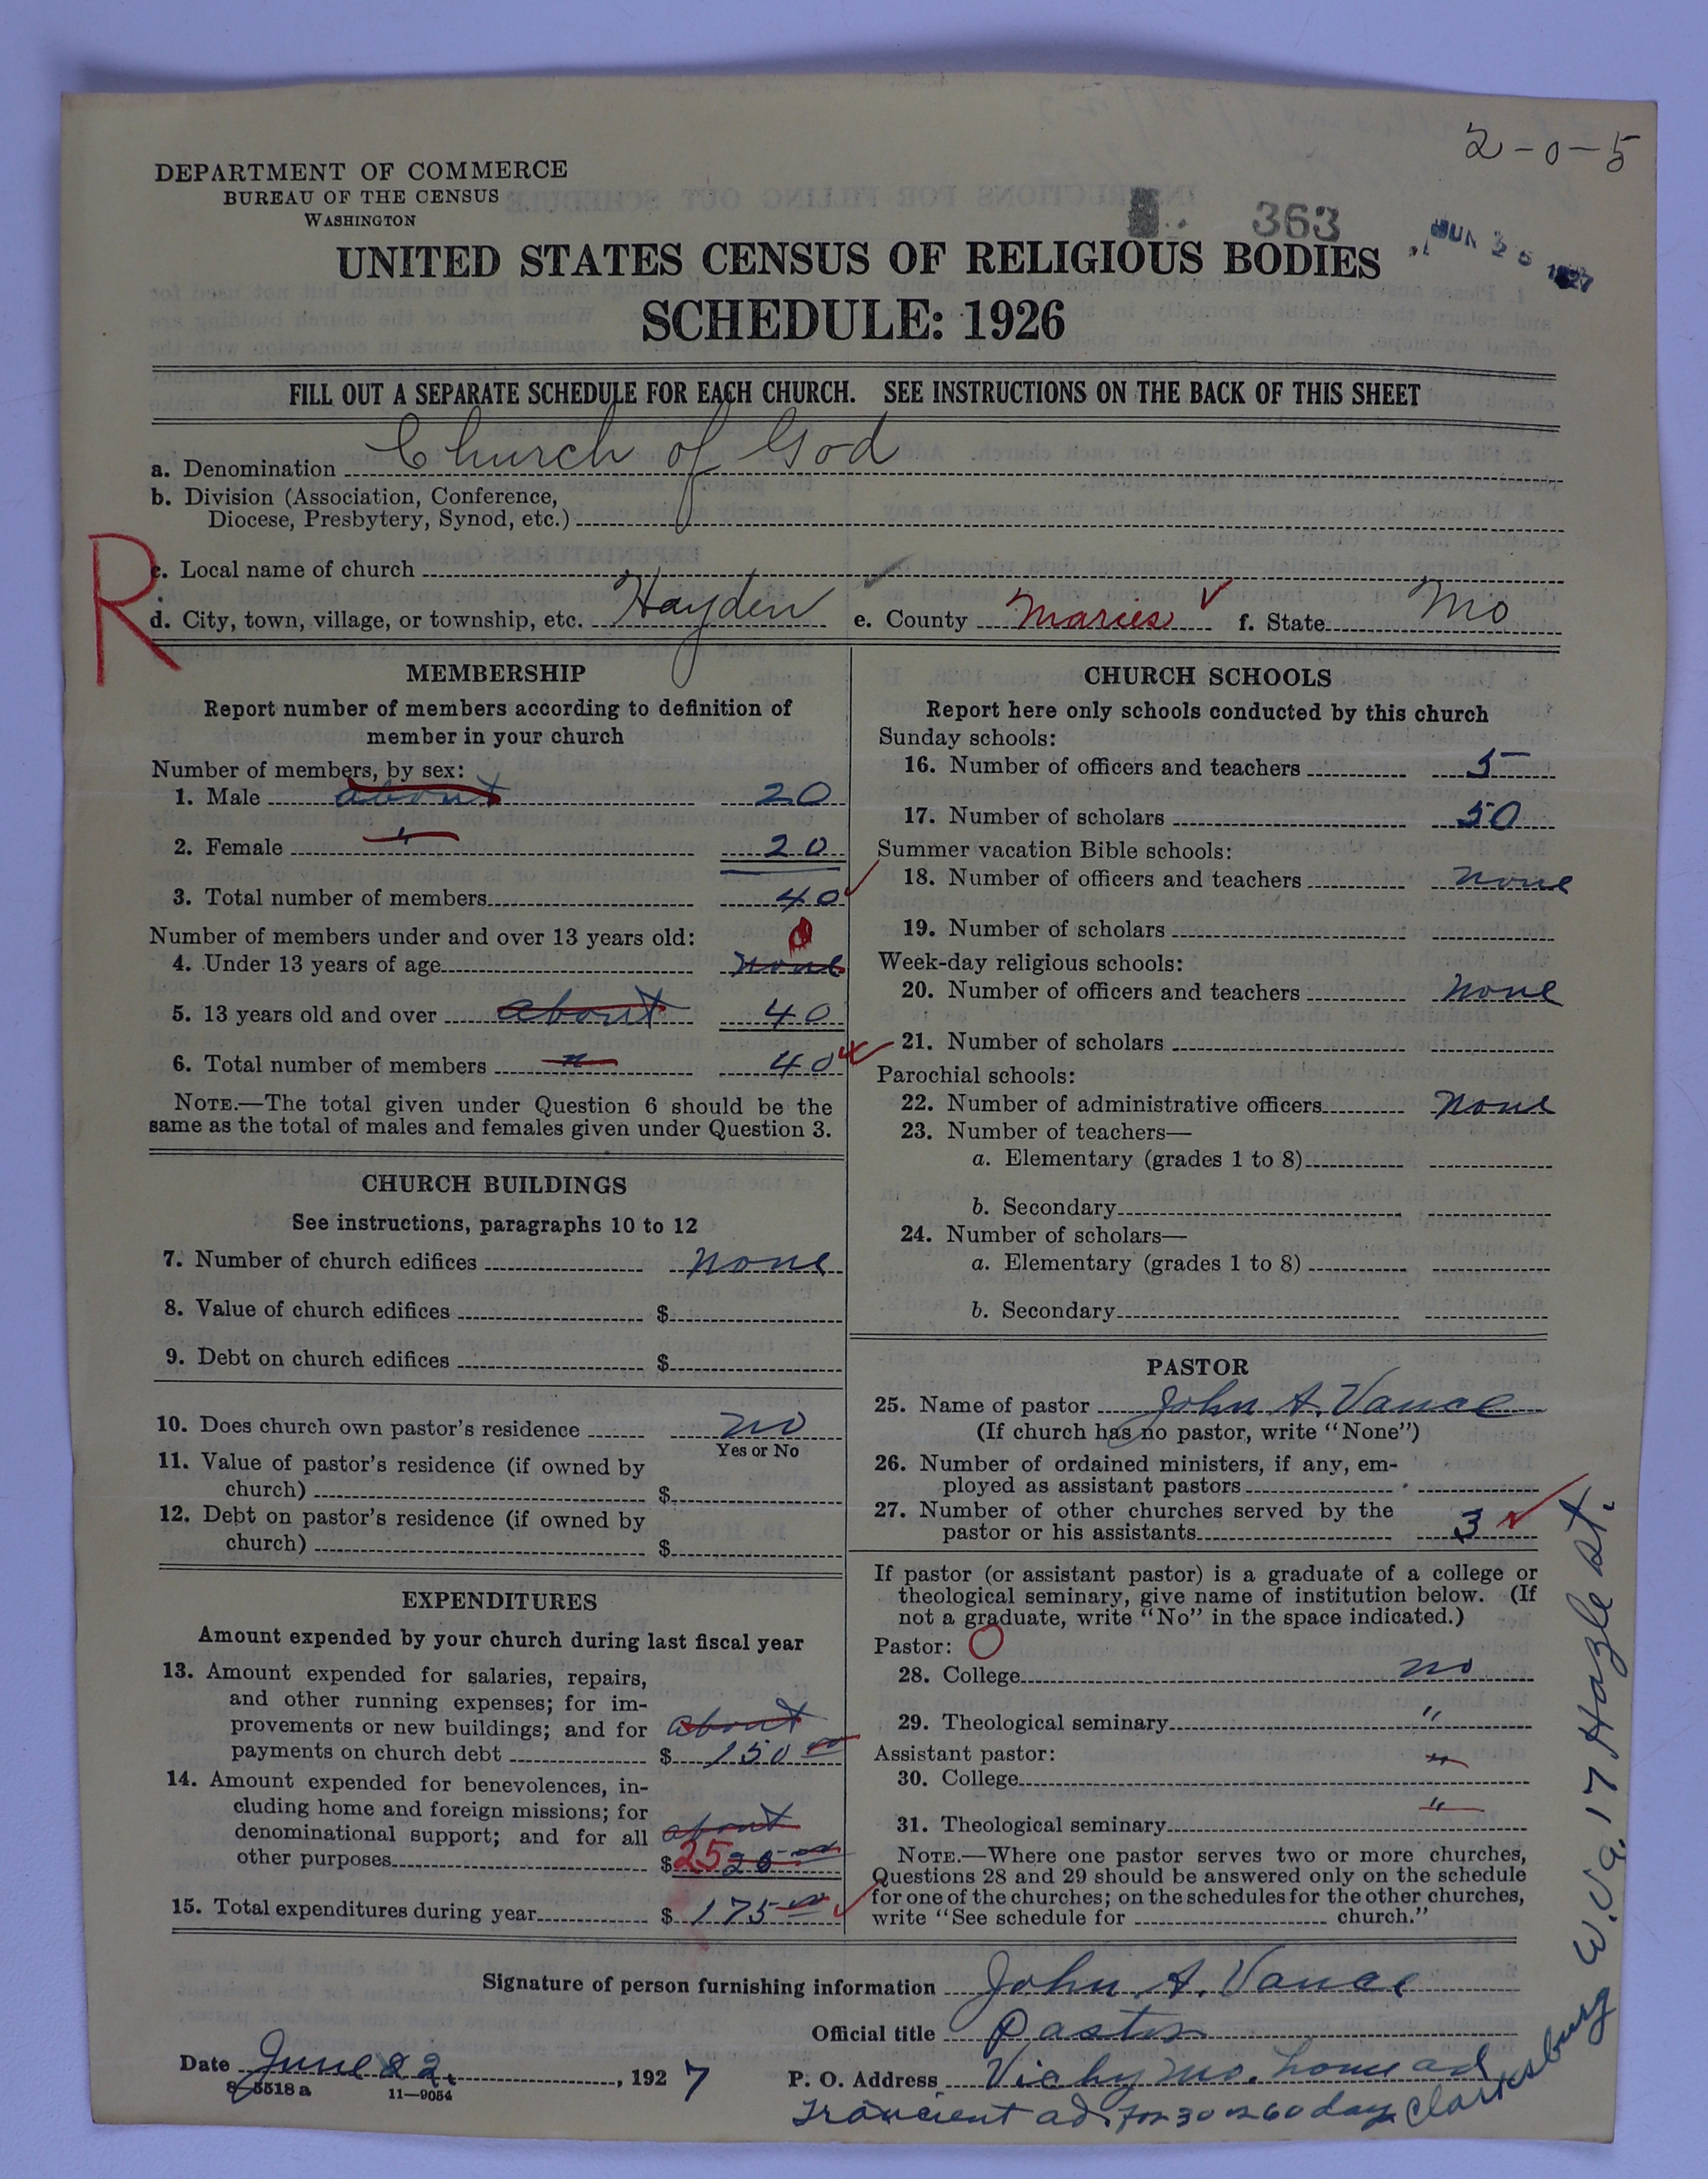 2-0-5
DEPARTMENT OF COMMERCE
BUREAU OF THE CENSUS
WASHINGTON
363
JUN 25 1927
UNITED STATES CENSUS OF RELIGIOUS BODIES
SCHEDULE: 1926
FILL OUT A SEPARATE SCHEDULE FOR EACH CHURCH. SEE INSTRUCTIONS ON THE BACK OF THIS SHEET
a. Denomination Church of God
b. Division (Association, Conference,
Diocese, Presbytery, Synod, etc.)
R
c. Local name of church
d. City, town, village, or township, etc. Hayden e. County Maries f. State Mo
MEMBERSHIP
Report number of members according to definition of
member in your church
Number of members, by sex:
1. Male about 20
2. Female " 20
3. Total number of members 40
Number of members under and over 13 years old: 0
4. Under 13 years of age none
5. 13 years old and over about 40
6. Total number of members " 40
NOTE.—The total given under Question 6 should be the
same as the total of males and females given under Question 3.
CHURCH BUILDINGS
See instructions, paragraphs 10 to 12
7. Number of church edifices none
8. Value of church edifices $
9. Debt on church edifices $
10. Does church own pastor's residence no
Yes or No
11. Value of pastor's residence (if owned by
church) $
12. Debt on pastor's residence (if owned by
church) $
EXPENDITURES
Amount expended by your church during last fiscal year
13. Amount expended for salaries, repairs,
and other running expenses; for im-
provements or new buildings; and for about
payments on church debt $ 150 00
14. Amount expended for benevolences, in-
cluding home and foreign missions; for
denominational support; and for all about
other purposes $ 25 25 00
15. Total expenditures during year $ 175 00
CHURCH SCHOOLS
Report here only schools conducted by this church
Sunday schools:
16. Number of officers and teachers 5
17. Number of scholars 50
Summer vacation Bible schools:
18. Number of officers and teachers none
19. Number of scholars
Week-day religious schools:
20. Number of officers and teachers none
21. Number of scholars
Parochial schools:
22. Number of administrative officers none
23. Number of teachers—
a. Elementary (grades 1 to 8)
b. Secondary
24. Number of scholars—
a. Elementary (grades 1 to 8)
b. Secondary
PASTOR
25. Name of pastor John A. Vance
(If church has no pastor, write "None")
26. Number of ordained ministers, if any, em-
ployed as assistant pastors
27. Number of other churches served by the
pastor or his assistants 3
If pastor (or assistant pastor) is a graduate of a college or
theological seminary, give name of institution below. (If
not a graduate, write "No" in the space indicated.)
Pastor: O
28. College no
29. Theological seminary "
Assistant pastor: "
30. College
"
31. Theological seminary
NOTE.—Where one pastor serves two or more churches,
Questions 28 and 29 should be answered only on the schedule
for one of the churches; on the schedules for the other churches,
write "See schedule for church."
Signature of person furnishing information John A. Vance
Official title Pastor
Date June 22, 1927 P. O. Address Vichy Mo. home ad
8-5518 a 11-9054
Trancient ad. for 30 or 60 days Clarksburg W. Va. 17 Hazle st.